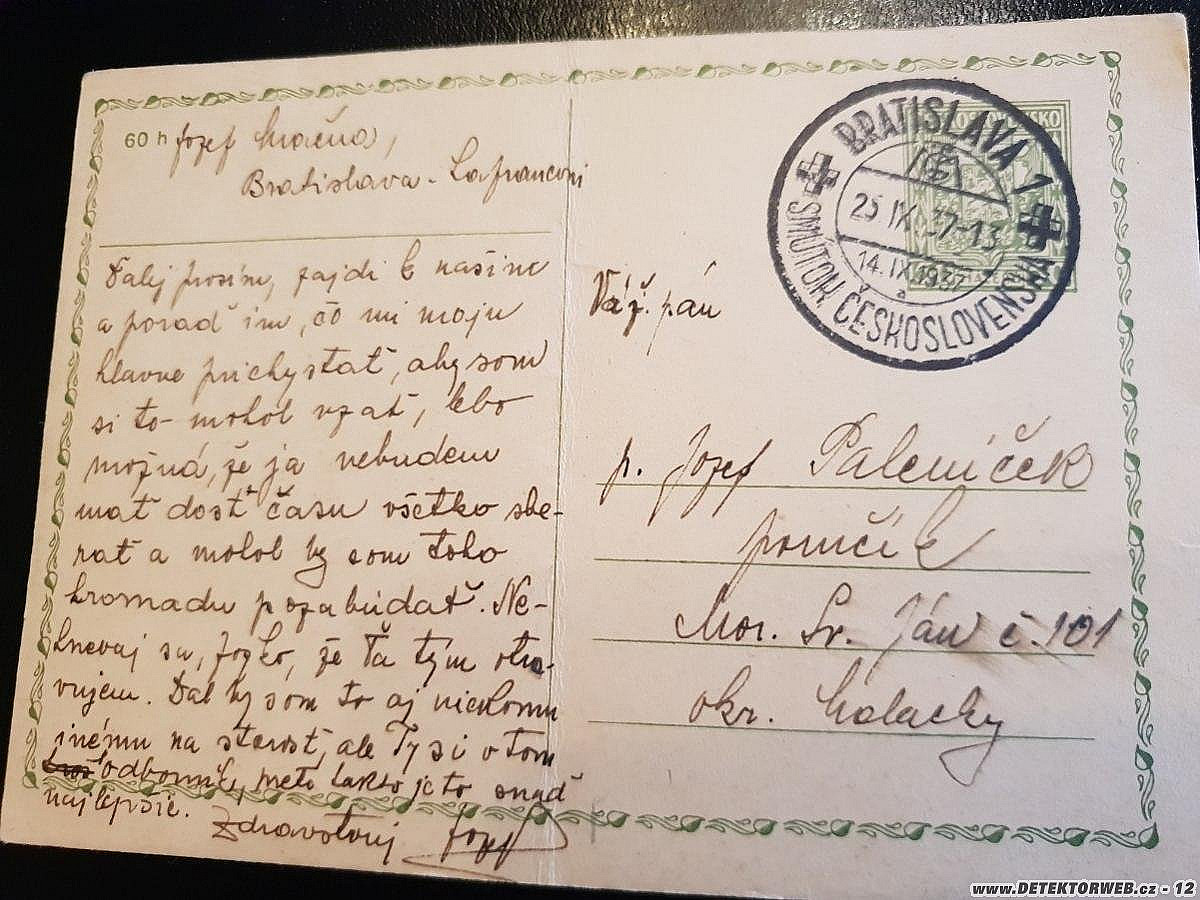 60 h Jozef
Bratislava - Lafranconi
Ďalej prosím, zajdi k našim
a poraď im, čo mi majú
hlavne prichystať, aby som
si to mohol vzať, lebo
možná, že ja nebudem
mať dosť času všetko sbe-
rať a mohol by som toho
hromadu pozabúdať. Ne-
hnevaj sa, Jožko, že Ťa tým otra-
vujem. Dal by som to aj niekomu
inému na starosť, ale Ty si v tom
odborník, preto takto je to snáď
najlepšie.
Zdravstvuj Jozef
BRATISLAVA 1
25.IX.37-13
14.IX.1937
a
SMÚTOK ČESKOSLOVENSKA
Váž. pán
p. Jozef Paleníček
poručík
Mor. Sv. Ján č. 101
okr. Malacky
www.DETEKTORWEB.cz - 12